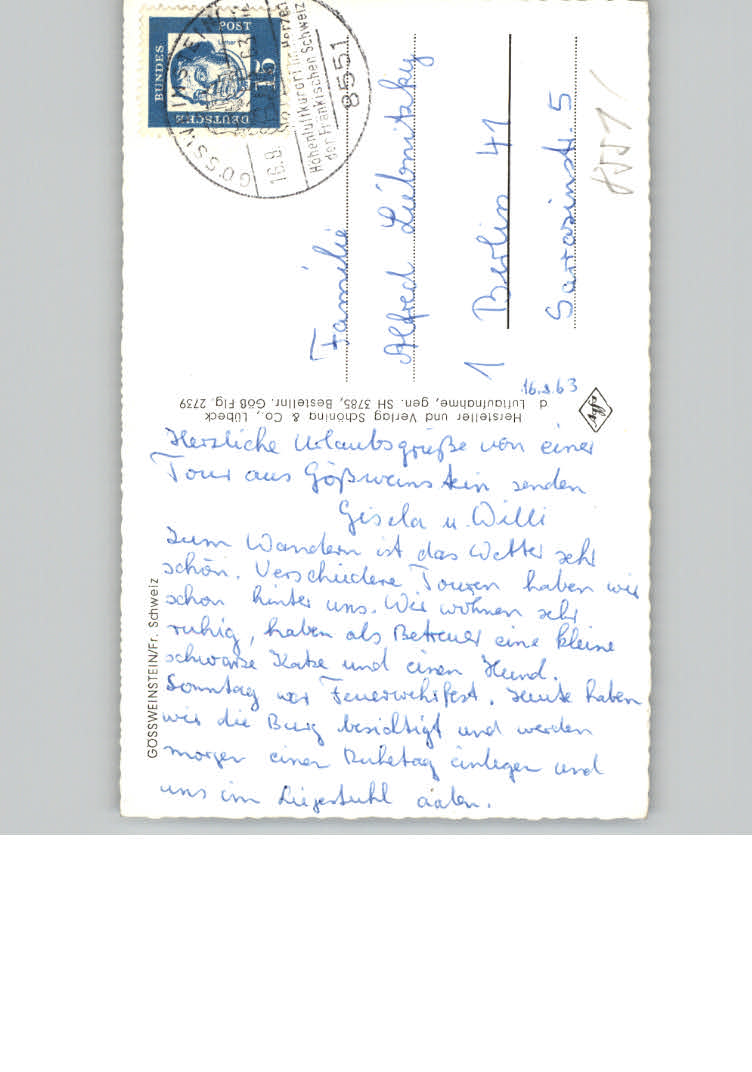 DEUTSCHE
BUNDES
POST
15
GÖSSWEINSTEIN
16.8.63
Höhenluftkurort im Herzen
der Fränkischen Schweiz
8551
Familie
Alfred Liebnitzky
1 Berlin 41
Sarrazinstr. 5
8551
16.8.63
Hersteller und Verlag Schöning & Co., Lübeck
d Luftaufnahme, gen. SH 3785, Bestellnr. Göß Flg. 2739
GÖSSWEINSTEIN/Fr. Schweiz
Herzliche Urlaubsgrüße von einer
Tour aus Gößweinstein senden
Gisela u. Willi
Zum Wandern ist das Wetter sehr
schön. Verschiedene Touren haben wir
schon hinter uns. Wir wohnen sehr
ruhig, haben als Betreuer eine kleine
schwarze Katze und einen Hund.
Sonntag war Feuerwehrfest. Heute haben
wir die Burg besichtigt und werden
morgen einen Ruhetag einlegen und
uns im Liegestuhl aalen.